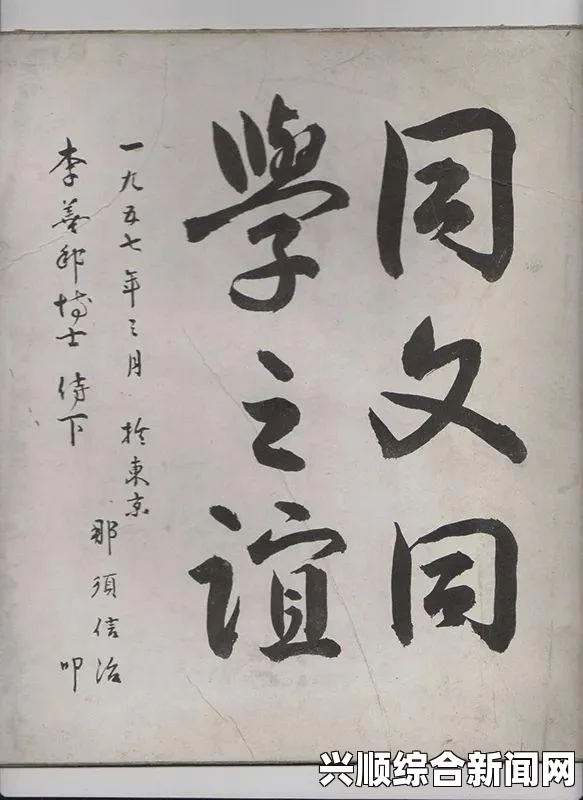 同文同
學之誼
一九五七年三月 於東京
那須信治
李善邦博士 侍下
叩
兴顺综合新闻网